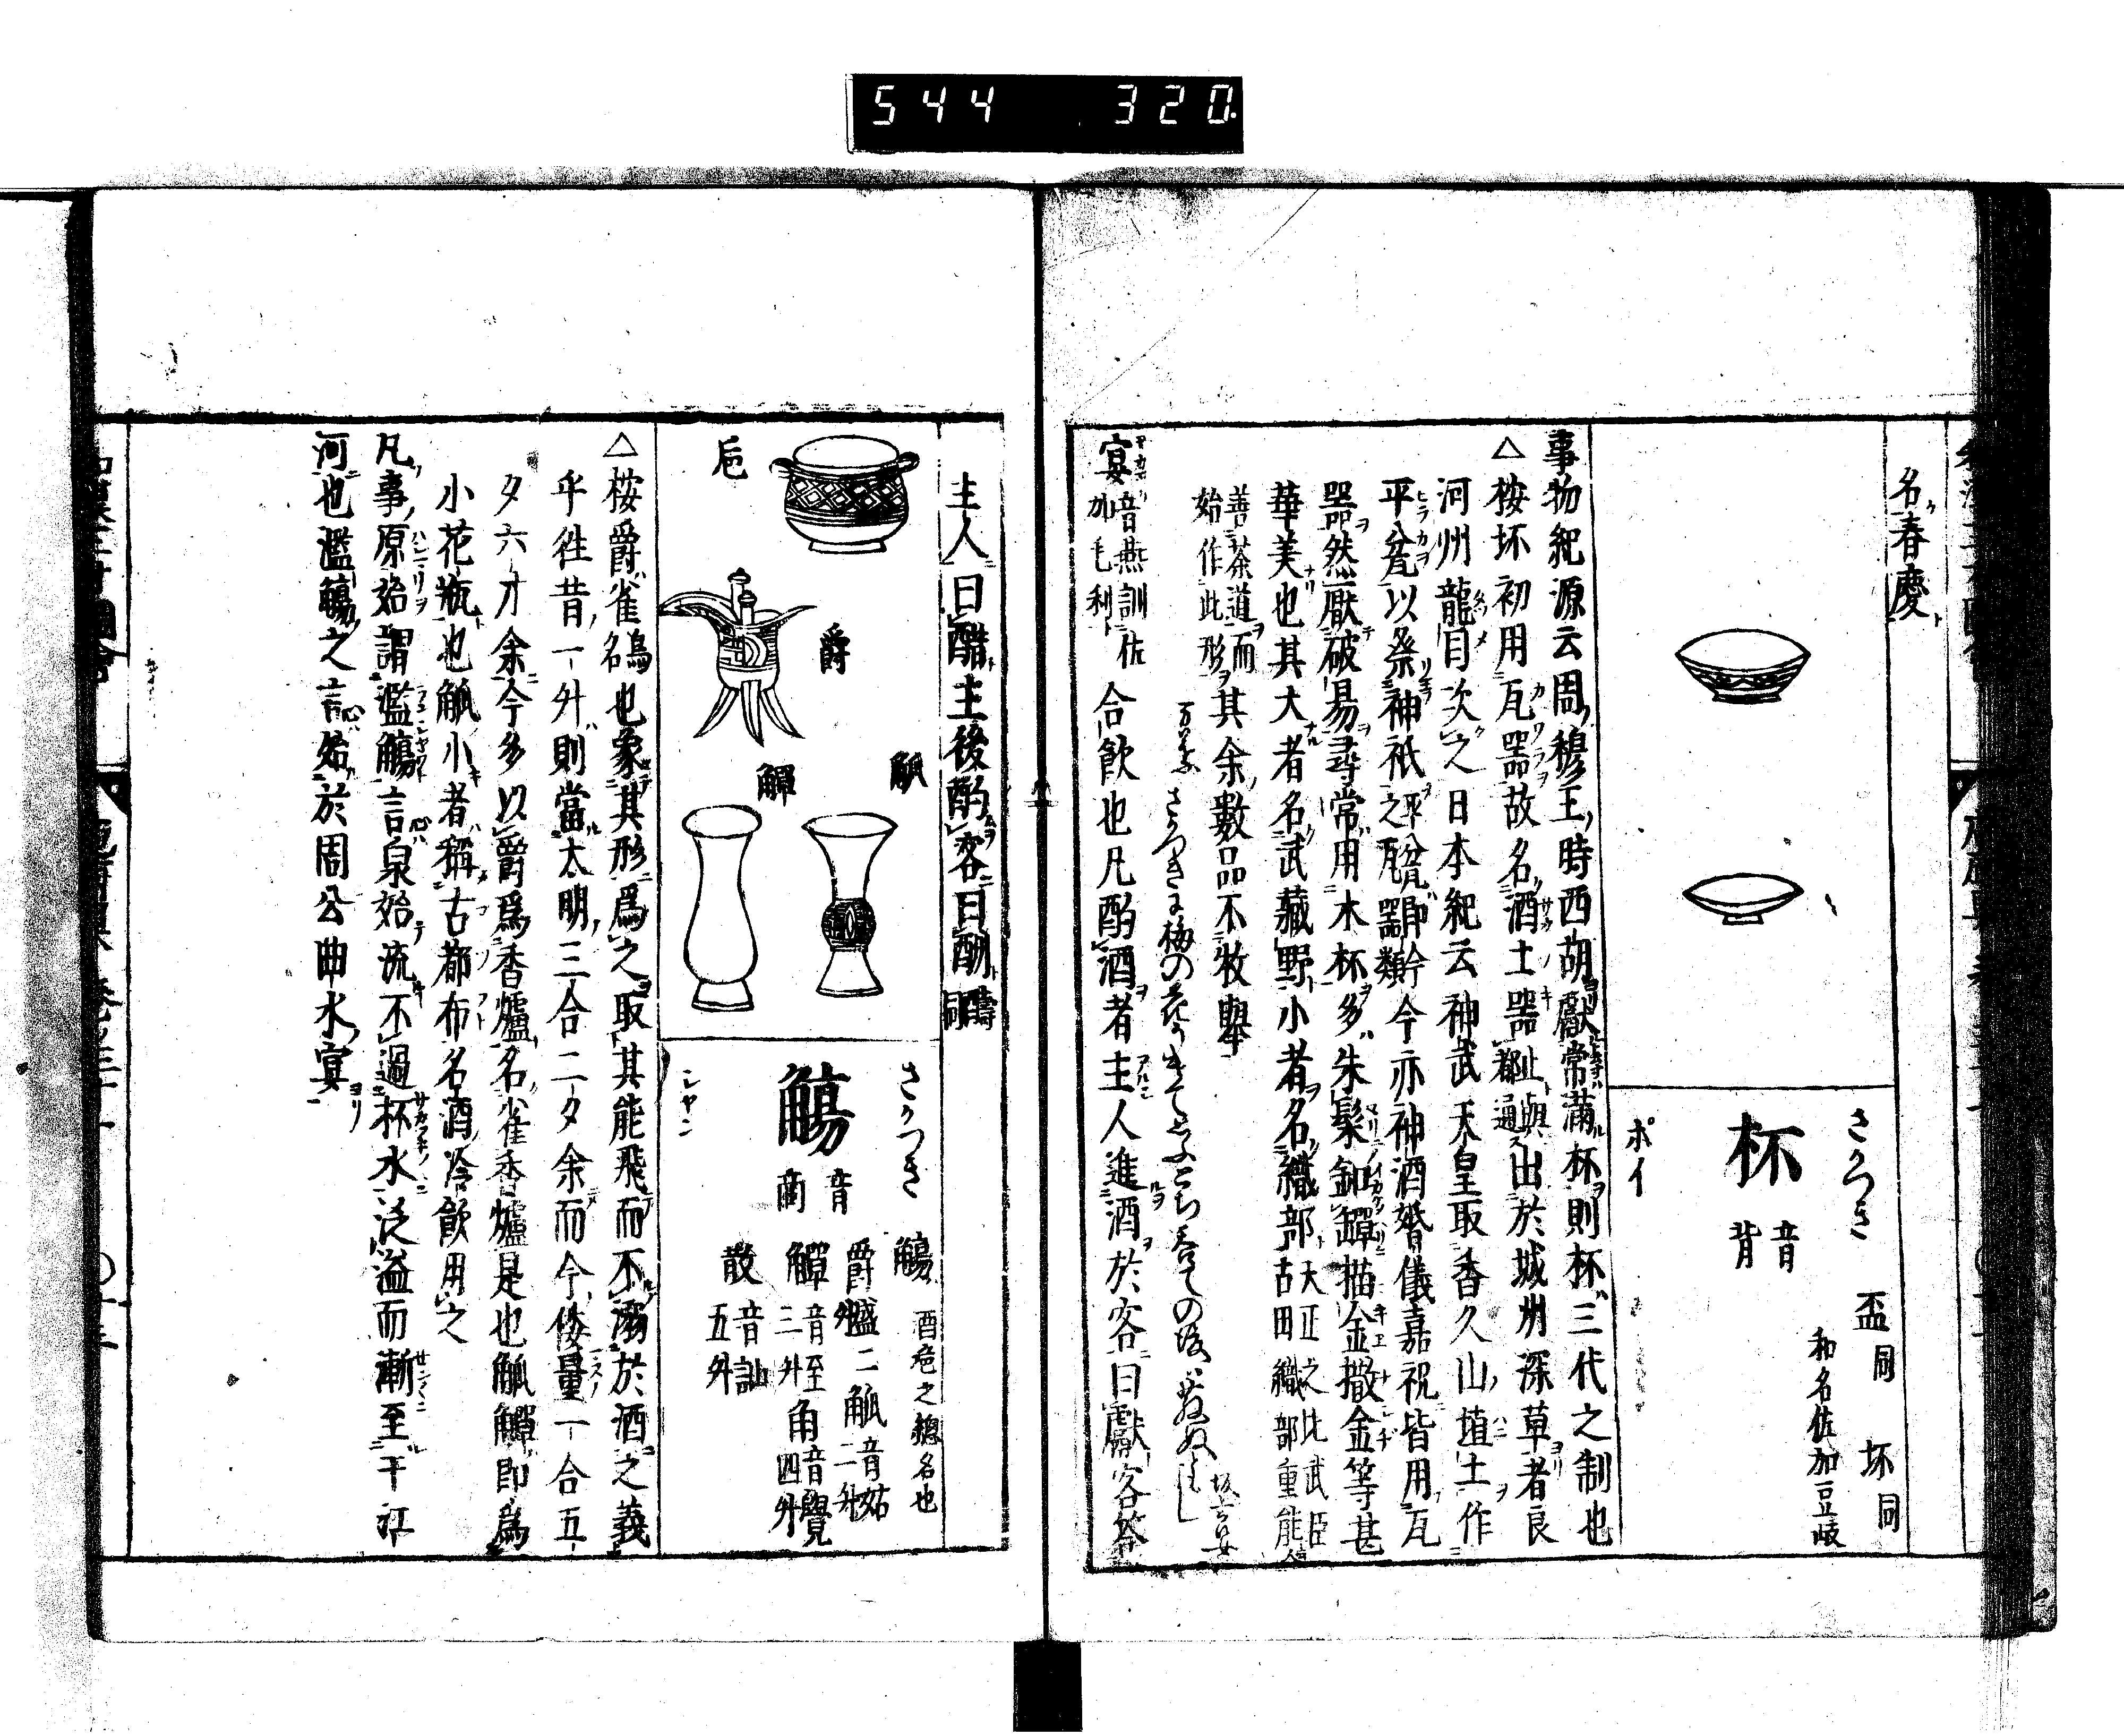 544 320
名春慶ト
さかつき
杯
音背
盃同
坏同
和名佐加豆岐
ポイ
事物紀源云周穆王時西胡獻常滿杯則杯三代之制也
△桉坏初用瓦器故名酒土器此與都通出於城州深草者良
河州龍目次之日本紀云神武天皇取香久山埴土作
平瓮以祭神祇平瓮即瓦器類今亦神酒婚儀嘉祝皆用瓦
器然厭破易尋常用木杯多朱髹釦鏆描金撒金等甚
華美也其大者名武藏野小者名織部天正之比武臣古田織部重能
善茶道而始作此形其余數品不牧擧
宴音燕訓佐加毛利合飮也凡酌酒者主人進酒於客曰獻客答
主人曰酢主後酌客曰酬醻同
巵
爵
觚
觶
さかつき
觴
音商
シヤン
觴酒巵之總名也
爵盛二觚音姑二升
觶音至三升角音覺四升
散音訕五升
△桉爵雀鳥名也象其形爲之取其能飛而不溺於酒之義
乎徃昔一升則當太明三合二夕余而今倭量一合五
夕六才余今多以爵爲香爐名雀香爐是也觚觶即爲
小花瓶也觚小者稱古都布名酒冷飮用之
凡事原始謂濫觴言泉始流不過杯水泛溢而漸至于江
河也濫觴之言始於周公曲水宴